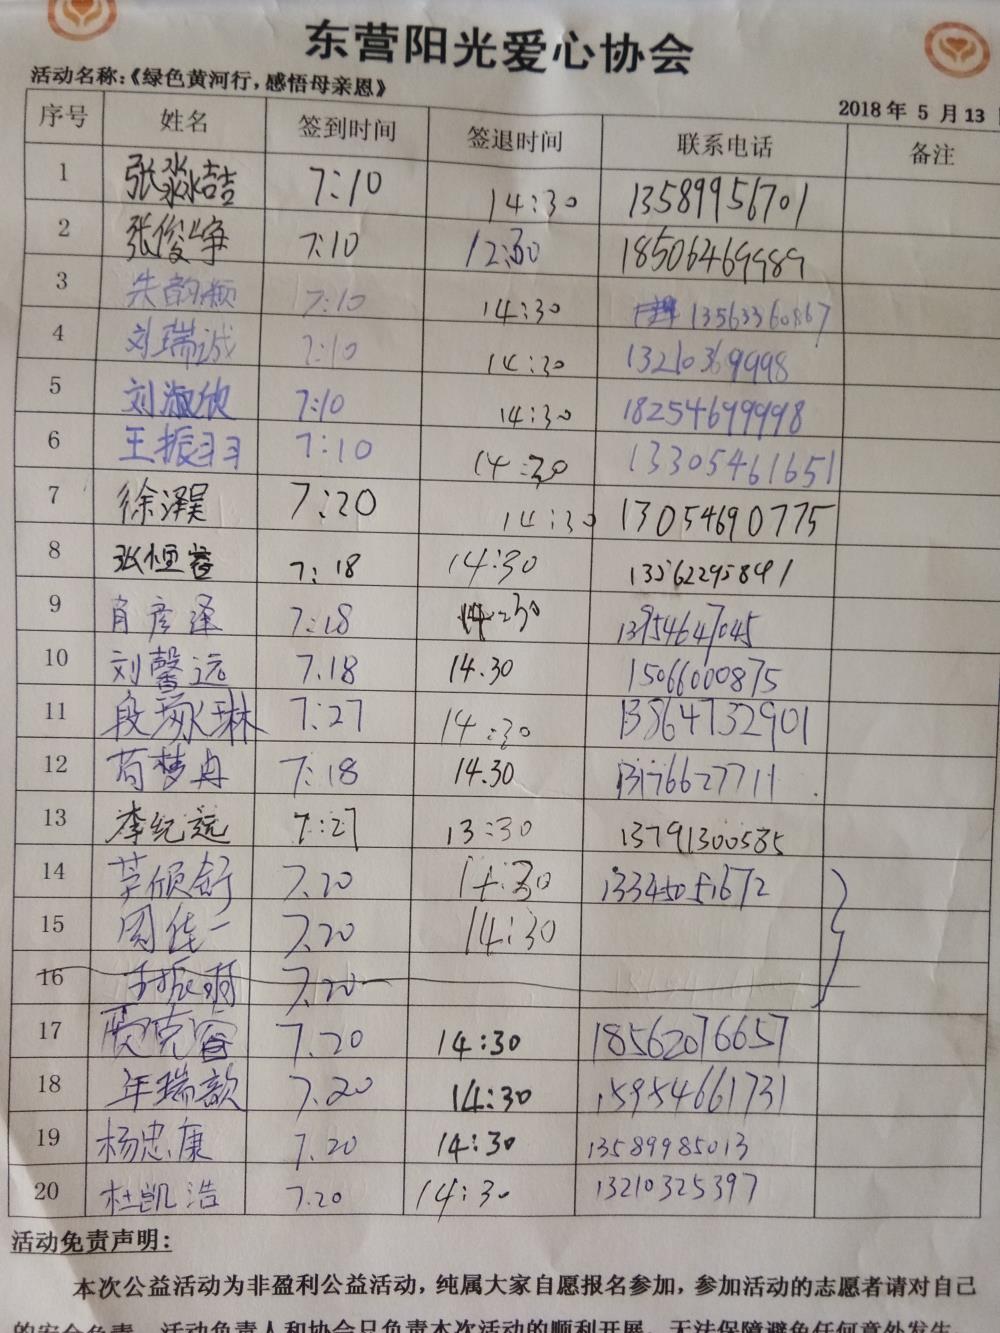 东营阳光爱心协会
活动名称：《绿色黄河行，感悟母亲恩》
2018年 5 月 13
序号 姓名 签到时间 签退时间 联系电话 备注
1 张淼喆 7:10 14:30 13589956701
2 张俊峥 7:10 12:30 18506469989
3 朱韵颖 7:10 14:30 13563360867
4 刘瑞诚 7:10 14:30 13210369998
5 刘淑欣 7:10 14:30 18254699998
6 王振羽 7:10 14:30 13305461651
7 徐泽昊 7:20 14:30 13054690775
8 张恒睿 7:18 14:30 13562295891
9 肖彦泽 7:18 14:30 13954647045
10 刘馨远 7.18 14.30 15066000875
11 段琳 7:27 14:30 13864732901
12 苟梦冉 7:18 14.30 13176627711
13 李纪远 7:27 13:30 13791300585
14 7.20 14:30 13345051672
15 周佳一 7.20 14:30
16 7.20
17 贾克睿 7.20 14:30 18562076657
18 年瑞歆 7.20 14:30 15954661731
19 杨忠康 7.20 14:30 13589985013
20 杜凯浩 7.20 14:30 13210325397
活动免责声明：
本次公益活动为非盈利公益活动，纯属大家自愿报名参加，参加活动的志愿者请对自己
的安全负责，活动负责人和协会只负责本次活动的顺利开展，无法保障避免任何意外发生